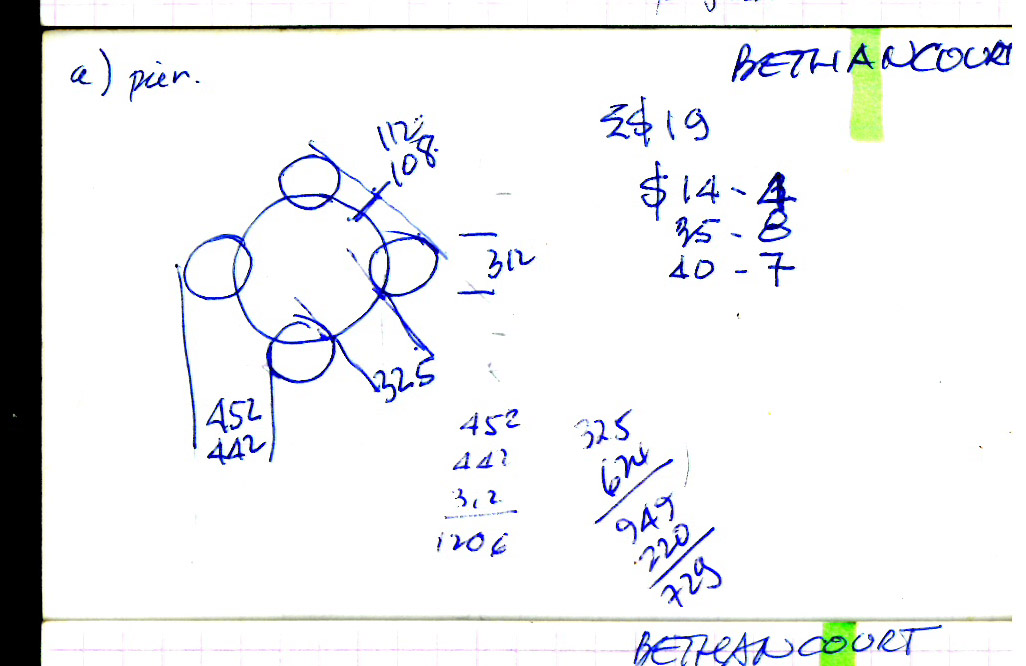 BETHANCOURT
a) pier.
Σ$ 19
112
108
$ 14 - 4
35 - 8
40 - 7
312
325
452
442
452
442
312
1206
325
624
949
220
729
BETHANCOURT